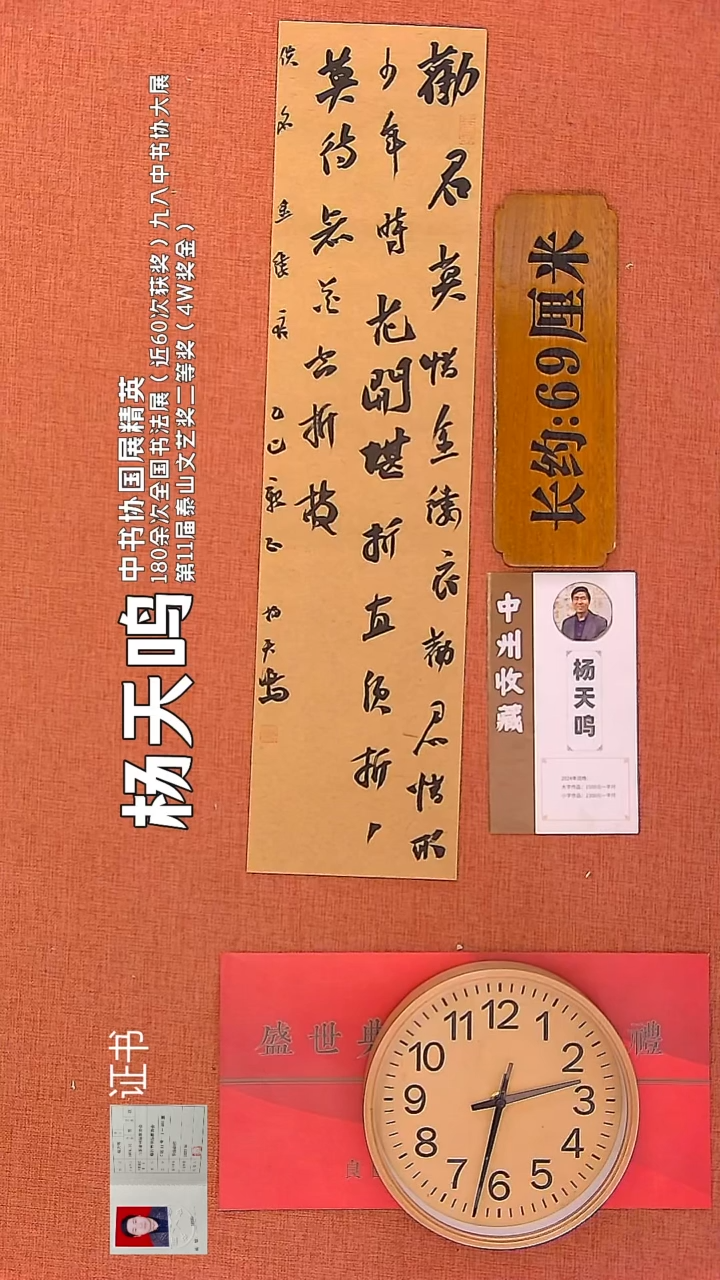 杨天鸣
中书协国展精英
180余次全国书法展（近60次获奖）九八中书协大展
第11届泰山文艺奖二等奖（4W奖金）
勸君莫惜金縷衣勸君惜取
少年時花開堪折直須折
莫待無花空折枝
佚名 金縷衣 乙巳 杨天鸣
长约:69厘米
中州收藏
杨天鸣
证书
盛世典
禮
12
1
2
3
4
5
6
7
8
9
10
11